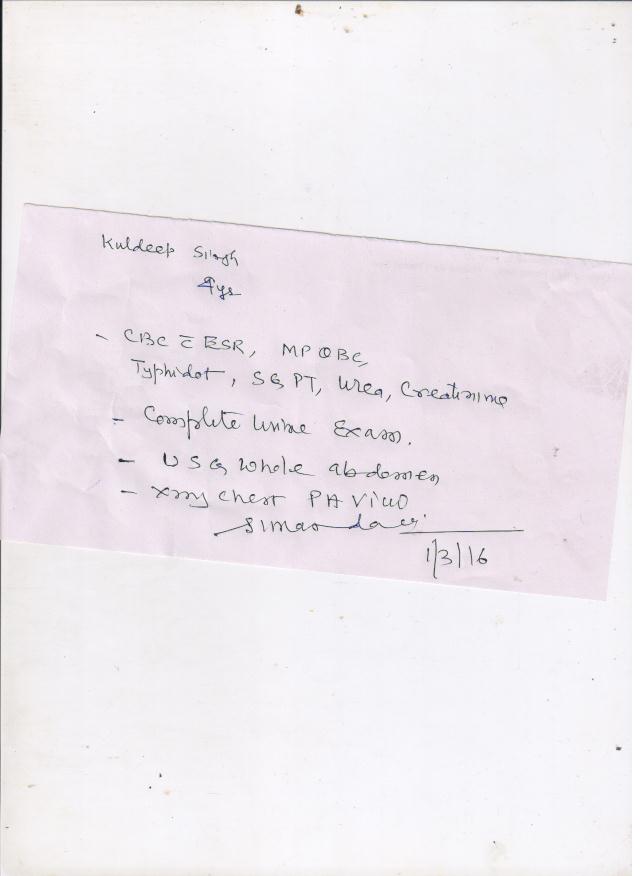 Kuldeep Singh
- CBC c̄ ESR, MP QBC,
Typhidot, SGPT, Urea, Creatinine
- Complete Urine Exam.
- USG whole abdomen
- Xray chest PA View
1/3/16